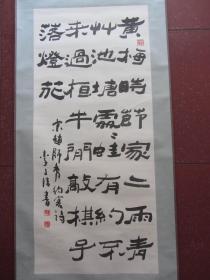 黃梅時節家〻雨青
艸池塘處〻蛙有約不
來過夜半閒敲棋子
落燈花
宋趙師秀約客詩
李 書